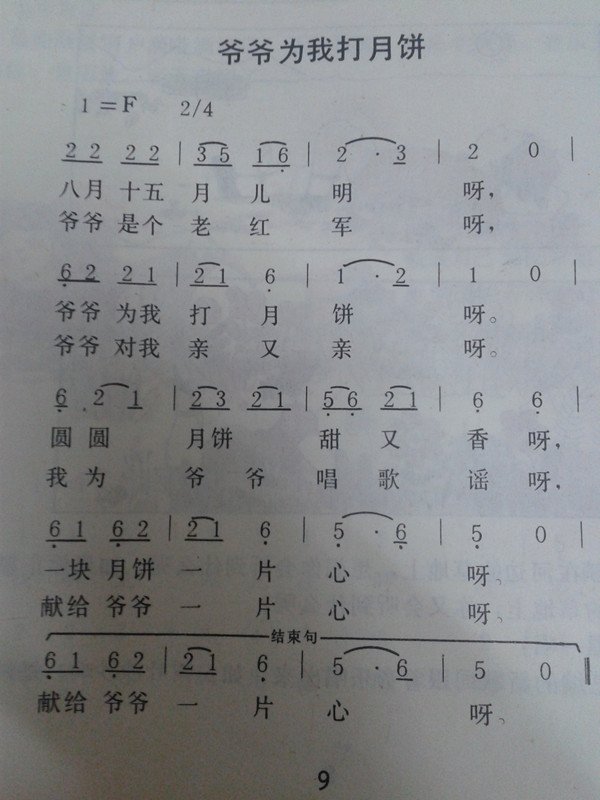 爷爷为我打月饼
1=F 2/4
2 2 2 2 | 3 5 1 6 | 2 · 3 | 2 0 |
八月 十五 月 儿 明 呀,
爷爷 是个 老 红 军 呀,
6 2 2 1 | 2 1 6 | 1 · 2 | 1 0 |
爷爷 为我 打 月 饼 呀。
爷爷 对我 亲 又 亲 呀。
6 . 2 1 | 2 3 2 1 | 5 6 2 1 | 6 6 |
圆 圆 月饼 甜 又 香 呀,
我 为 爷 爷 唱 歌 谣 呀,
6 1 6 2 | 2 1 6 | 5 · 6 | 5 0 |
一块 月饼 一 片 心 呀、
献给 爷爷 一 片 心 呀、
结束句
6 1 6 2 | 2 1 6 | 5 · 6 | 5 0 ‖
献给 爷爷 一 片 心 呀、
9